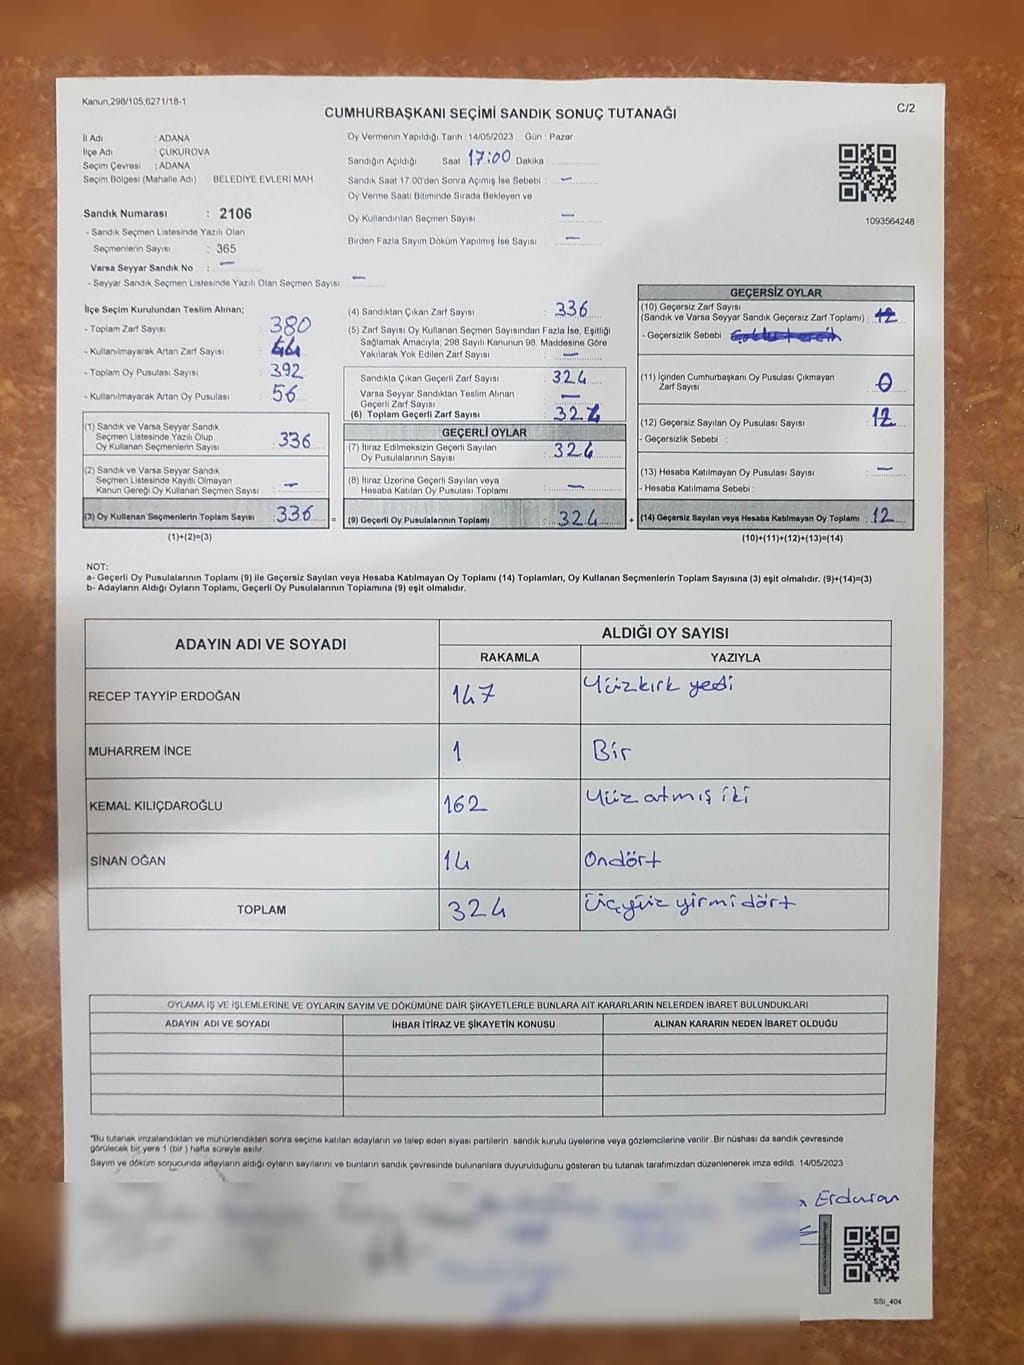 Kanun,298/105,6271/18-1
C/2
CUMHURBAŞKANI SEÇİMİ SANDIK SONUÇ TUTANAĞI
İl Adı : ADANA
İlçe Adı : ÇUKUROVA
Seçim Çevresi : ADANA
Seçim Bölgesi (Mahalle Adı) BELEDİYE EVLERİ MAH
Sandık Numarası : 2106
- Sandık Seçmen Listesinde Yazılı Olan
Seçmenlerin Sayısı : 365
Varsa Seyyar Sandık No : –
- Seyyar Sandık Seçmen Listesinde Yazılı Olan Seçmen Sayısı: –
Oy Vermenin Yapıldığı Tarih : 14/05/2023 Gün : Pazar
Sandığın Açıldığı Saat 17:00 Dakika :
Sandık Saat 17.00'den Sonra Açımış İse Sebebi : –
Oy Verme Saati Bitiminde Sırada Bekleyen ve
Oy Kullandırılan Seçmen Sayısı –
Birden Fazla Sayım Döküm Yapılmış İse Sayısı : –
1093564248
İlçe Seçim Kurulundan Teslim Alınan;
- Toplam Zarf Sayısı : 380
- Kullanılmayarak Artan Zarf Sayısı : 44
- Toplam Oy Pusulası Sayısı : 392
- Kullanılmayarak Artan Oy Pusulası : 56
(1) Sandık ve Varsa Seyyar Sandık
Seçmen Listesinde Yazılı Olup
Oy Kullanan Seçmenlerin Sayısı : 336
(2) Sandık ve Varsa Seyyar Sandık
Seçmen Listesinde Kayıtlı Olmayan
Kanun Gereği Oy Kullanan Seçmen Sayısı : –
(3) Oy Kullanan Seçmenlerin Toplam Sayısı : 336 =
(1)+(2)=(3)
(4) Sandıktan Çıkan Zarf Sayısı : 336
(5) Zarf Sayısı Oy Kullanan Seçmen Sayısından Fazla İse, Eşitliği
Sağlamak Amacıyla; 298 Sayılı Kanunun 98. Maddesine Göre
Yakılarak Yok Edilen Zarf Sayısı : –
Sandıkta Çıkan Geçerli Zarf Sayısı : 324
Varsa Seyyar Sandıktan Teslim Alınan
Geçerli Zarf Sayısı : –
(6) Toplam Geçerli Zarf Sayısı : 324
GEÇERLİ OYLAR
(7) İtiraz Edilmeksizin Geçerli Sayılan
Oy Pusulalarının Sayısı : 324
(8) İtiraz Üzerine Geçerli Sayılan veya
Hesaba Katılan Oy Pusulası Toplamı : –
(9) Geçerli Oy Pusulalarının Toplamı : 324 +
GEÇERSİZ OYLAR
(10) Geçersiz Zarf Sayısı
(Sandık ve Varsa Seyyar Sandık Geçersiz Zarf Toplamı) : 12
- Geçersizlik Sebebi
(11) İçinden Cumhurbaşkanı Oy Pusulası Çıkmayan
Zarf Sayısı : 0
(12) Geçersiz Sayılan Oy Pusulası Sayısı : 12
- Geçersizlik Sebebi :
(13) Hesaba Katılmayan Oy Pusulası Sayısı : –
- Hesaba Katılmama Sebebi :
(14) Geçersiz Sayılan veya Hesaba Katılmayan Oy Toplamı : 12
(10)+(11)+(12)+(13)=(14)
NOT:
a- Geçerli Oy Pusulalarının Toplamı (9) ile Geçersiz Sayılan veya Hesaba Katılmayan Oy Toplamı (14) Toplamları, Oy Kullanan Seçmenlerin Toplam Sayısına (3) eşit olmalıdır. (9)+(14)=(3)
b- Adayların Aldığı Oyların Toplamı, Geçerli Oy Pusulalarının Toplamına (9) eşit olmalıdır.
ADAYIN ADI VE SOYADI ALDIĞI OY SAYISI
RAKAMLA YAZIYLA
RECEP TAYYİP ERDOĞAN 147 Yüzkırk yedi
MUHARREM İNCE 1 Bir
KEMAL KILIÇDAROĞLU 162 Yüz atmış iki
SİNAN OĞAN 14 Ondört
TOPLAM 324 Üçyüz yirmi dört
OYLAMA İŞ VE İŞLEMLERİNE VE OYLARIN SAYIM VE DÖKÜMÜNE DAİR ŞİKAYETLERLE BUNLARA AİT KARARLARIN NELERDEN İBARET BULUNDUKLARI
ADAYIN ADI VE SOYADI İHBAR İTİRAZ VE ŞİKAYETİN KONUSU ALINAN KARARIN NEDEN İBARET OLDUĞU
*Bu tutanak imzalandıktan ve mühürlendikten sonra seçime katılan adayların ve talep eden siyasi partilerin sandık kurulu üyelerine veya gözlemcilerine verilir .Bir nüshası da sandık çevresinde
görülecek bir yere 1 (bir ) hafta süreyle asılır.
Sayım ve döküm sonucunda adayların aldığı oyların sayılarını ve bunların sandık çevresinde bulunanlara duyurulduğunu gösteren bu tutanak tarafımızdan düzenlenerek imza edildi. 14/05/2023
Erduran
SSI_404